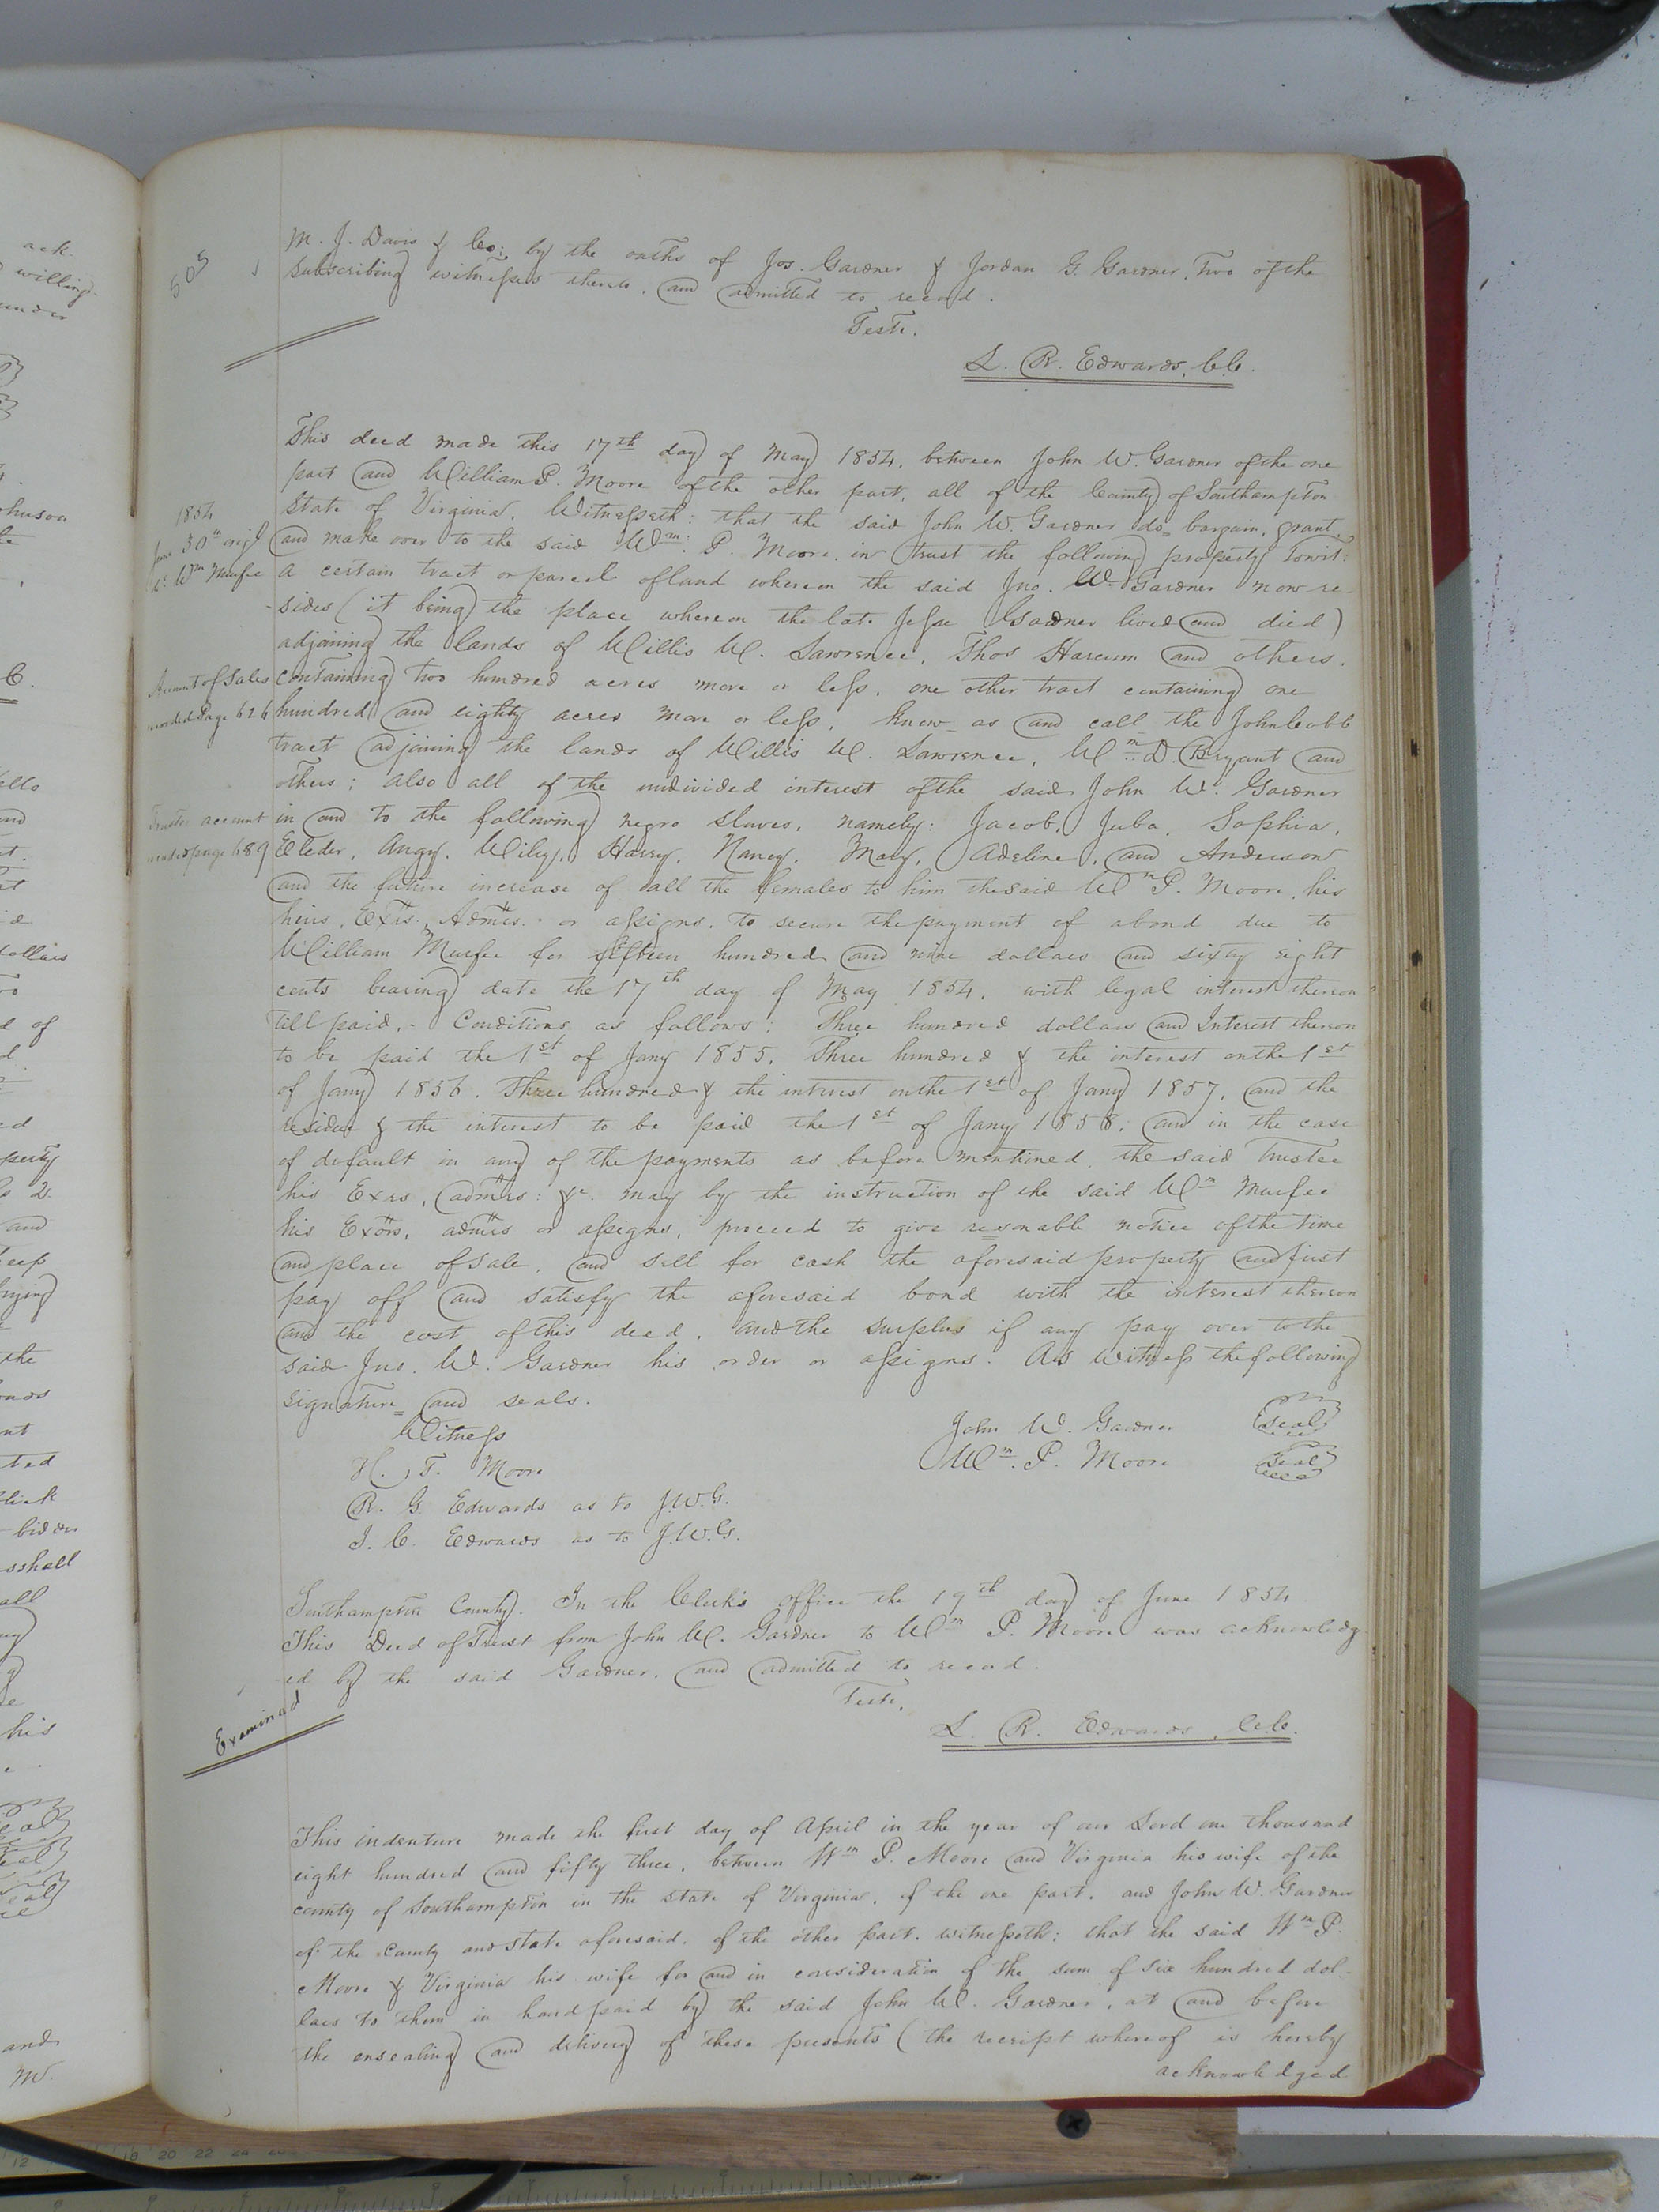 505
M. J. Davis & Co: by the oaths of Jos. Gardner & Jordan G. Gardner, Two of the
subscribing witnesses thereto, and admitted to record.
Teste.
L. R. Edwards, C.C.
This deed made this 17th day of May 1854, between John W. Gardner of the one
part and William P. Moore of the other part, all of the County of Southampton
State of Virginia, Witnesseth: that the said John W. Gardner do bargain, grant,
and make over to the said Wm: P. Moore, in trust the following property Towit:
a certain tract or parcel of land whereon the said Jno. W. Gardner now re-
-sides (it being the place whereon the late Jesse Gardner lived and died)
adjoining the lands of Willis W. Lawrence, Thos Harcum and others,
containing two hundred acres more or less, one other tract containing one
hundred and eighty acres more or less, know as and call the John Cobb
tract adjoining the lands of Willis W. Lawrence, Wm D. Bryant and
others; also all of the undivided interest of the said John W. Gardner
in and to the following negro slaves, namely: Jacob, Juba, Sophia,
Eleder, Angy, Wiley, Harry, Nancy, Mary, Adeline, and Anderson
and the future increase of all the females to him the said Wm P. Moore, his
heirs, Exrs, Admrs. or assigns, to secure the payment of a bond due to
William Murfee for fifteen hundred and nine dollars and sixty eight
cents bearing date the 17th day of May 1854, with legal interest thereon
till paid. - Conditions as follows: Three hundred dollars and Interest thereon
to be paid the 1st of Jany 1855, Three hundred & the interest on the 1st
of Jany 1856. Three hundred & the interest on the 1st of Jany 1857, and the
residue & the interest to be paid the 1st of Jany 1858, and in the case
of default in any of the payments as before mentioned, the said Trustee
his Exrs, admrs: &c. may by the instruction of the said Wm Murfee
his Exors, admrs or assigns, proceed to give resonable notice of the time
and place of sale, and sell for cash the aforesaid property and first
pay off and satisfy the aforesaid bond with the interest thereon
and the cost of this deed, and the surplus if any pay over to the
said Jno. W. Gardner his order or assigns. As witness the following
signature and seals.
Witness
John W. Gardner Seal
H. F. Moore
Wm. P. Moore Seal
R. G. Edwards as to J.W.G.
J. C. Edwards as to J.W.G.
1854
June 30th origl
d. Wm Murfee
Account of Sales
recorded Page 626
Trustees account
recorded page 689
Southampton County. In the Clerk's office the 19th day of June 1854
This Deed of Trust from John W. Gardner to Wm P. Moore was acknowledg
-ed by the said Gardner, and admitted to record.
Teste,
L. R. Edwards, C.C.
Examined
This indenture made the first day of April in the year of our Lord one thousand
eight hundred and fifty three, between Wm P. Moore and Virginia his wife of the
county of Southampton in the state of Virginia, of the one part, and John W. Gardner
of the County and State aforesaid, of the other part, witnesseth: that the said Wm P.
Moore & Virginia his wife for and in consideration of the sum of six hundred dol-
lars to them in hand paid by the said John W. Gardner, at and before
the ensealing and delivery of these presents (the receipt whereof is hereby
acknowledged